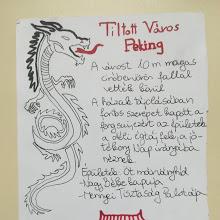 Tiltott Város
Peking
A várost 10 m magas
cinóbervörös fallal
vették körül
A házak tájolásában
fontos szerepet kapott a
fény
az épületek
a déli égtáj felé, a jó-
tékony Nap irányába
néznek.
Épületek: Öt
Nagy Béke kapuja
Mennyei Tisztaság Palotája